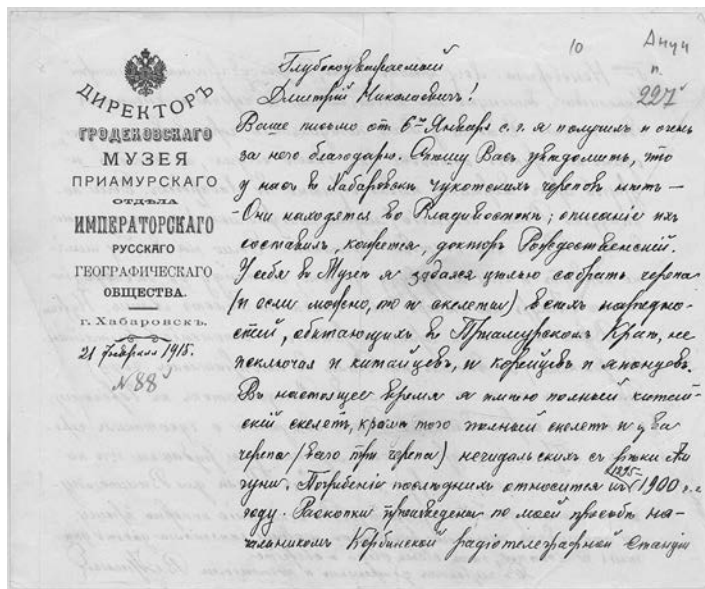 10
Ануч
п.
227
ДИРЕКТОРЪ
ГРОДЕКОВСКАГО
МУЗЕЯ
ПРИАМУРСКАГО
ОТДѢЛА
ИМПЕРАТОРСКАГО
РУССКАГО
ГЕОГРАФИЧЕСКАГО
ОБЩЕСТВА.
г. Хабаровскъ.
21 Февраля 1915.
№ 88
Глубокоуважаемый
Дмитрій Николаевичъ!
Ваше письмо от 6го Января с. г. я получилъ и очень
за него благодарю. Спѣшу Васъ увѣдомить, что
у насъ въ Хабаровскѣ чукотскихъ череповъ нѣтъ —
Они находятся во Владивостокѣ; описаніе ихъ
составилъ, кажется, докторъ Рождественскій.
У себя въ Музеѣ я задался цѣлью собрать черепа
(и если можно, то и скелеты) всѣхъ народно-
стей, обитающихъ въ Приамурскомъ Краѣ, не
исключая и китайцевъ, и корейцевъ и японцевъ.
Въ настоящее время я имѣю полный китай-
скій скелетъ, кромѣ того полный скелетъ и два
черепа (всего три черепа) негидальскихъ съ рѣки Ам
гуни. Погребеніе послѣднихъ относится къ 1895–1900 г.г.
году. Раскопки произведены по моей просьбѣ на-
чальникомъ Кербинской радіотелеграфной Станціи